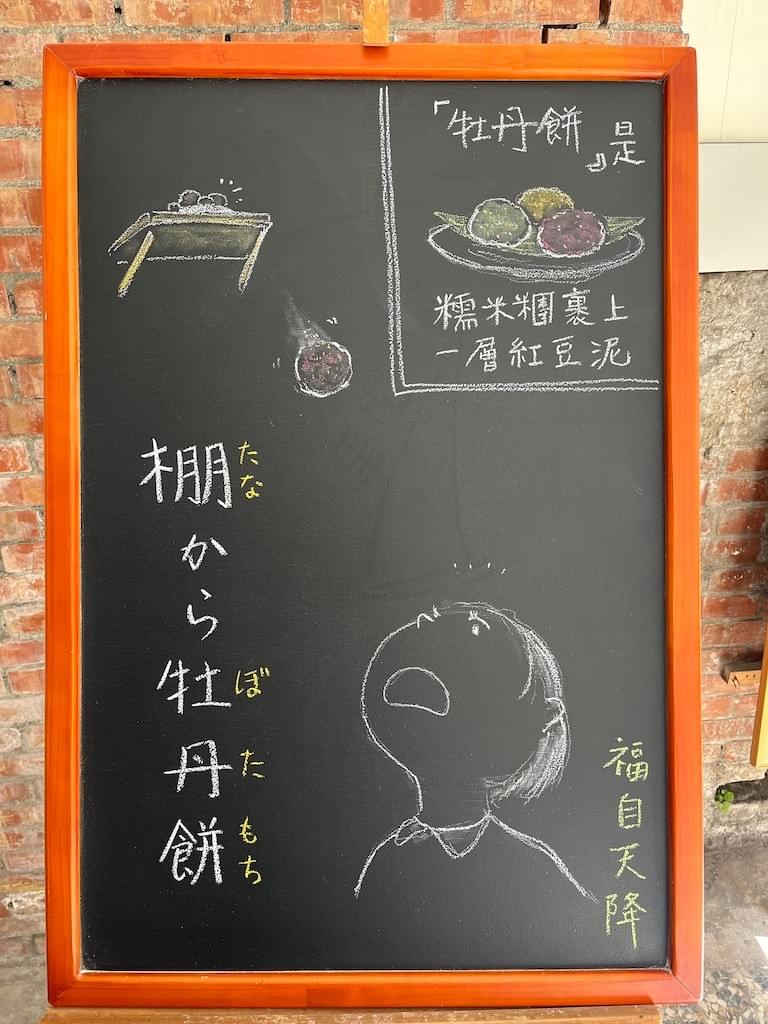 「牡丹餅』是
糯米糰裹上
一層紅豆泥
棚から牡丹餅
たな
ぼたもち
福自天降